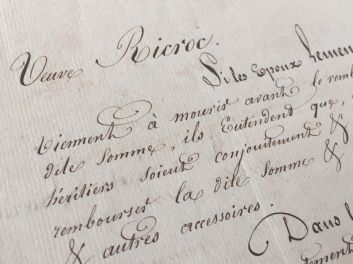 Veuve Ricroc.
Si les Epoux
viennent à mourir avant le
dite somme, ils Entendent que,
héritiers soient conjointement &
rembourser la dite somme &
& autres accessoires.
Dans